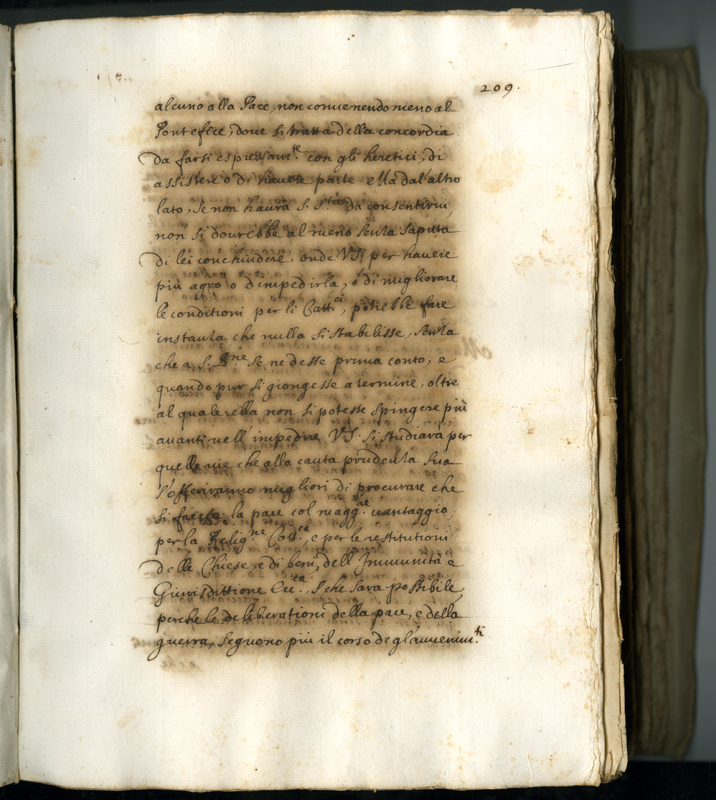 209.
alcuno alla Pace, non convenendo meno al
Pontefice, dove si tratta della concordia
da farsi espressam.te con gli heretici, di
assistere ò di havere parte. Ma dal'altro
lato, se non haurà S. S.tà da consentirvi,
non si dourebbe al meno senza saputa
di lei conchiudere. onde V.S. per havere
più agio ò d'impedirla, ò di migliorare
le conditioni per li Catt.ci, potrebbe fare
instanza che nulla si stabilisse, senza
che a S. B.ne se ne desse prima conto, e
quando pur si giongesse a termine, oltre
al quale ella non si potesse spingere più
avanti nell'impedire V.S. si studiarà per
quelle vie che alla cauta prudenza sua
s'offeriranno migliori di procurare che
si faccia la pace col magg.re vantaggio
per la Relig.ne Catt.ca, e per le restitutioni
delle Chiese, e di beni, dell'Immunità e
Giurisdittione Ecc.ca. Il che sarà possibile,
perche le deliberationi della pace, e della
guerra, seguono più il corso degl'avvenim.ti